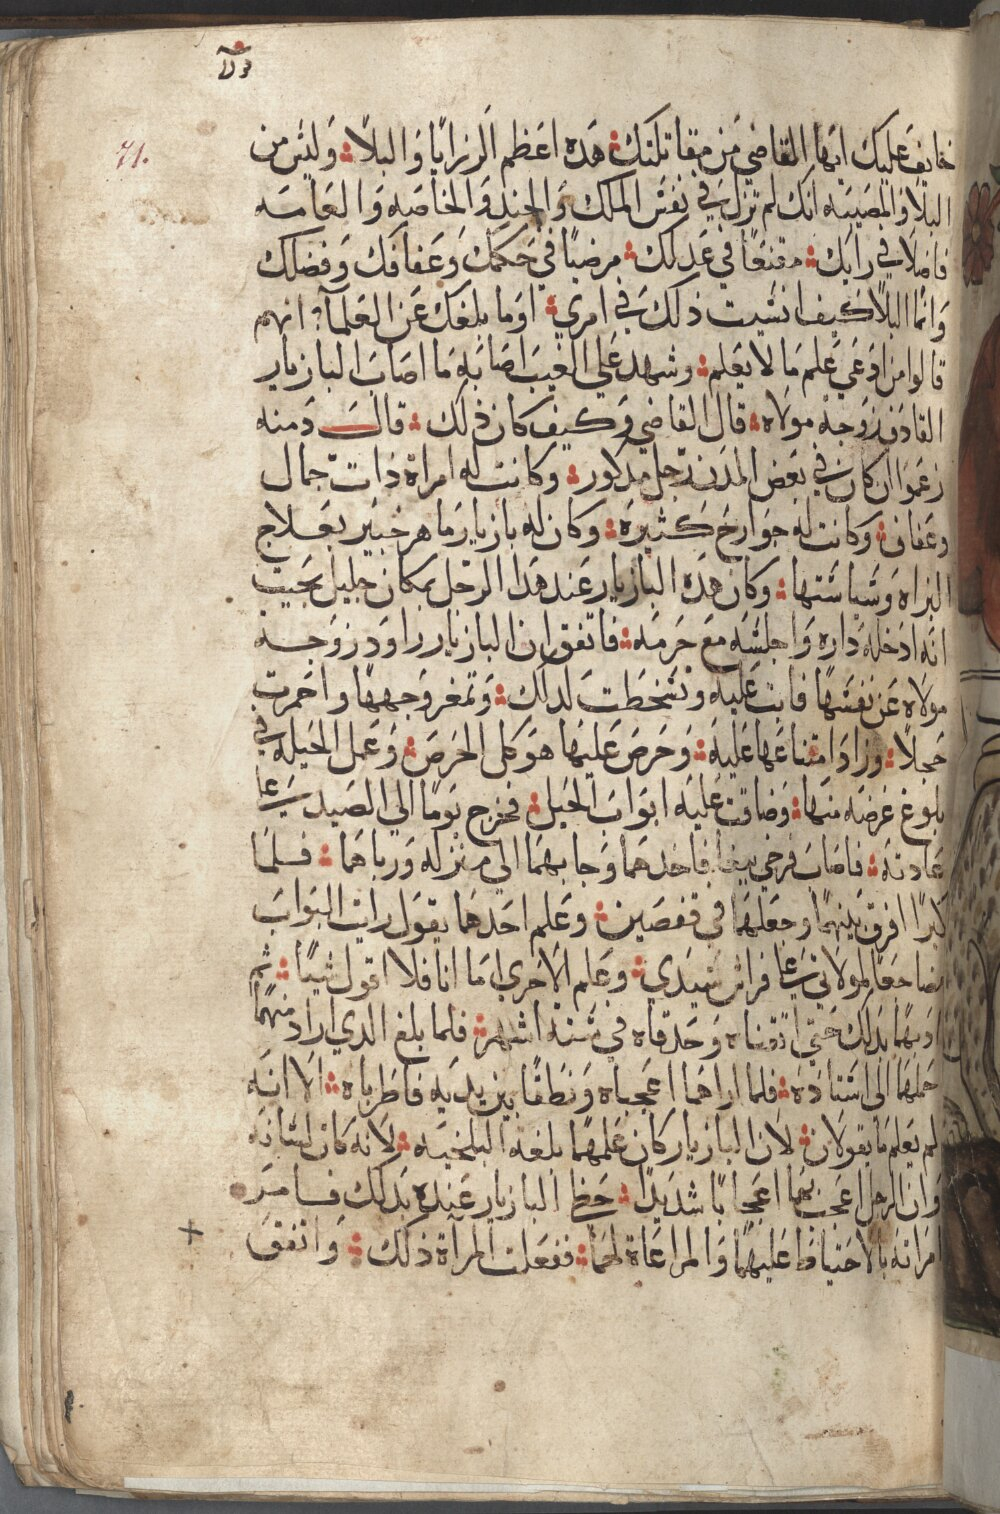 71.
خايف عليك ايها القاضي من مقاتلتك هده اعظم الرزايا والبلا وليس من
البلا والمصيبه انك لم تزل في نفس الملك والجند والخاصه والعامه
فاضلا في رايك مقنعا في عدلك مرضيا في حكمك وعفافك وفضلك
وانما البلا كيف انسيت ذلك في امري اوما بلغك عن العلما انهم
قالوا من ادعي علم ما لا يعلم وشهد علي الغيب اصابه ما اصاب البازيار
القادف زوجة مولاه قال القاضي وكيف كان ذلك قالــت دمنه
زعموا ان كان في بعض المدن رجل مدكور وكانت له امراة ذات جمال
وعفاف وكانت له جوارح كثيره وكان له بازيار ماهر خبير بعلاج
البزاه وسياستها وكان هده البازيار عند هدا الرجل بمكان جليل بحيت
انه ادخله داره واجلسه مع حرمه فاتفق ان البازيار راود زوجــة
مولاه عن نفسها فابت عليه وتسخطت لدلك وتمغر وجهها واحمرت
خجلا وزاد امتناعها عليه وحرص عليها هو كل الحرص وعمل الحيله في
بلوغ غرضه منها وضاقت عليه ابواب الحيل فخرج يوما الي الصيد علي
عادته فاصاب فرخي ببغا فاخدهما وجا بهما الي منزله ورباهما فلما
كبرا افرق بينهما وجعلهما في قفصين وعلم احدهما يقول رايت البواب
مضاجعا لمولاتي علي فراش سيدي وعلم الاخري اما انا فلا اقول شيا ثم
ادبهما بدلك حتي اتقناه وحدقاه في ستة اشهر فلما بلغ الدي اراد منهما
حملهما الي استاده فلما اراهما اعجباه ونطقا بين يديه فاطرباه الا انه
لم يعلم ما يقولان لان البازيار كان علمهما بلغة البلخيه لانه كان لسانه
وان الرجل اعجب بهما اعجابا شديدا حظي البازيار عنده بدلك فامــر
امراته بالاحتياط عليهما والمراعاة لهما ففعلت المرآة ذلك واتفق
+